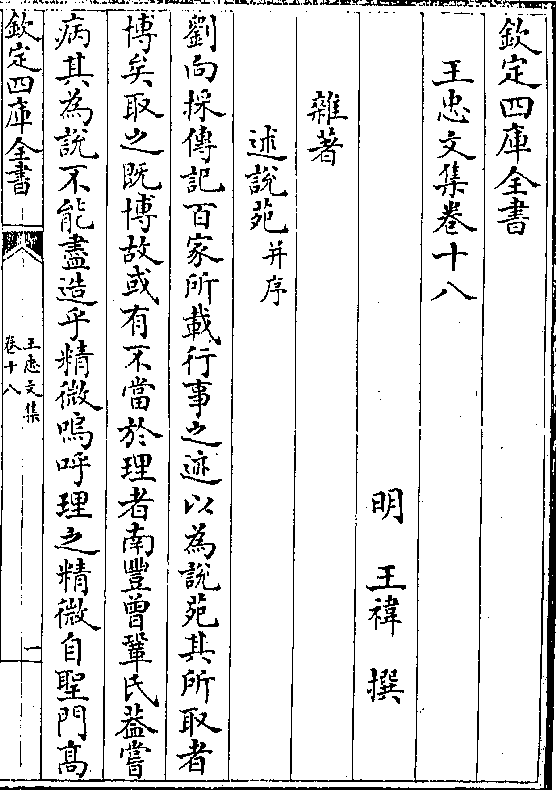 欽定四庫全書
王忠文集卷十八
明 王禕 撰
雜著
述說苑并序
劉向採傳記百家所載行事之迹以為說苑其所取者
博矣取之既博故或有不當於理者南豐曾鞏氏葢嘗
病其為說不能盡造乎精微嗚呼理之精微自聖門髙
欽定四庫全書
王忠文集
卷十八
一